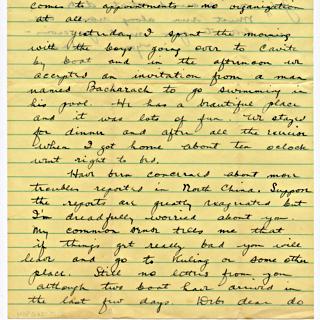 comes to appointments – no organization
at all.
Yesterday I spent the morning
with the boys going over to Cavite
by boat and in the afternoon we
accepted an invitation from a man
named Bacharach to go swimming in
his pool. He has a beautiful place
and it was lots of fun. We stayed
for dinner and after all the exercise
when I got home about ten o'clock
went right to bed.
Have been concerned about more
troubles reported in North China. Suppose
the reports are greatly exagerated but
I'm dreadfully worried about you.
My common sense tells me that
if things get really bad you will
leave and go to Kuling or some other
place. Still no letters from you
although two boats have arrived in
the last few days. dear do